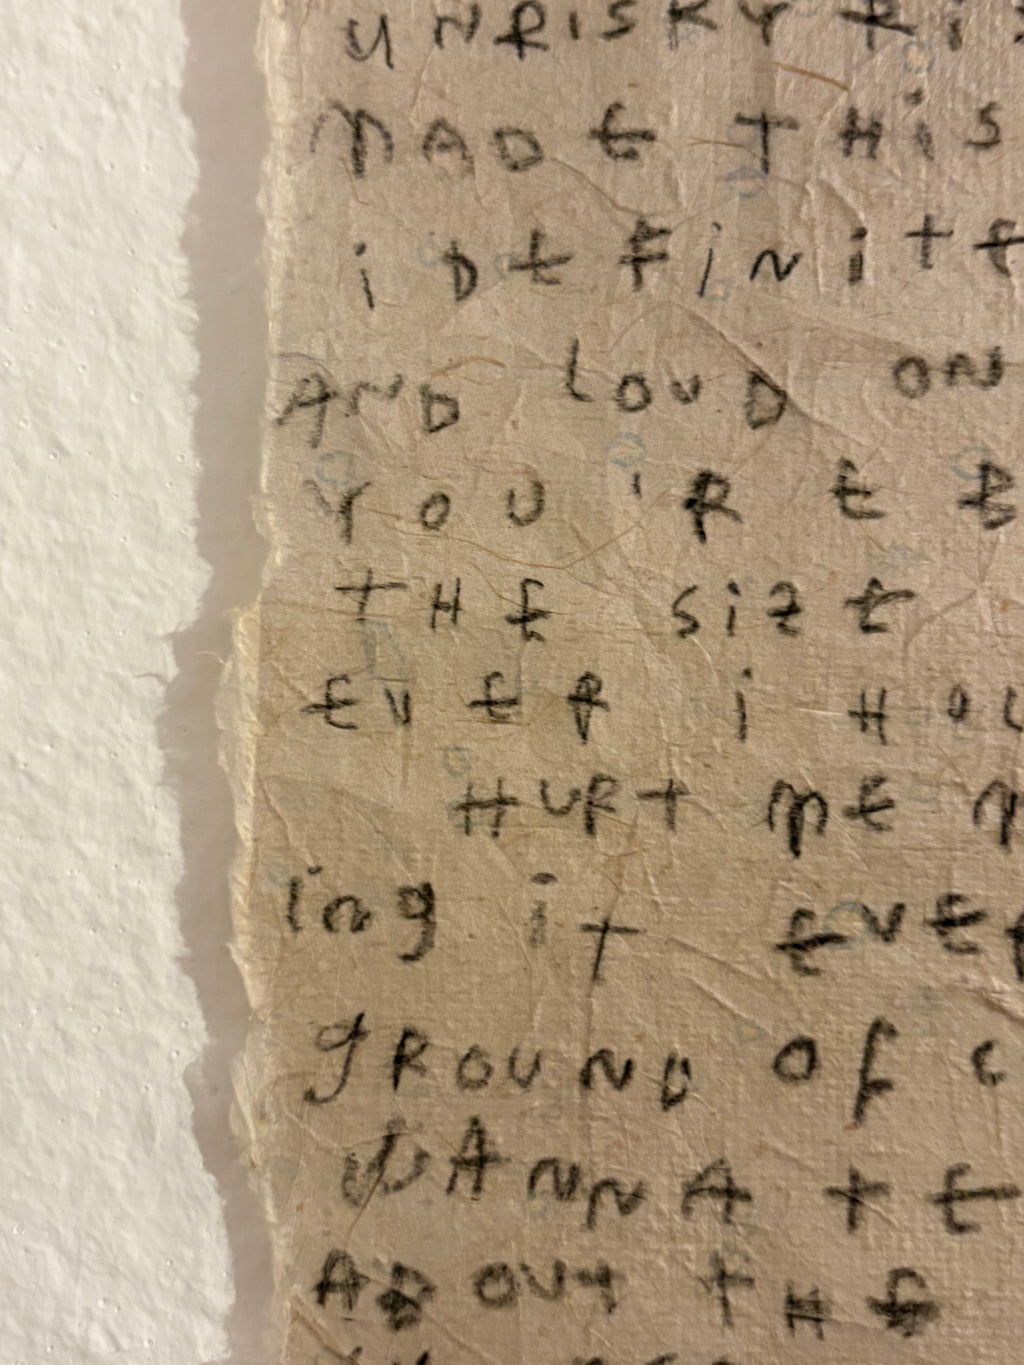 UNRISKY
MADE THIS
iDEFiNiTE
AND LOUD ON
YOU'RE
THE SiZE
EVER i
HURT ME
ing it
GROUND OF
WANNA
ABOUT THE